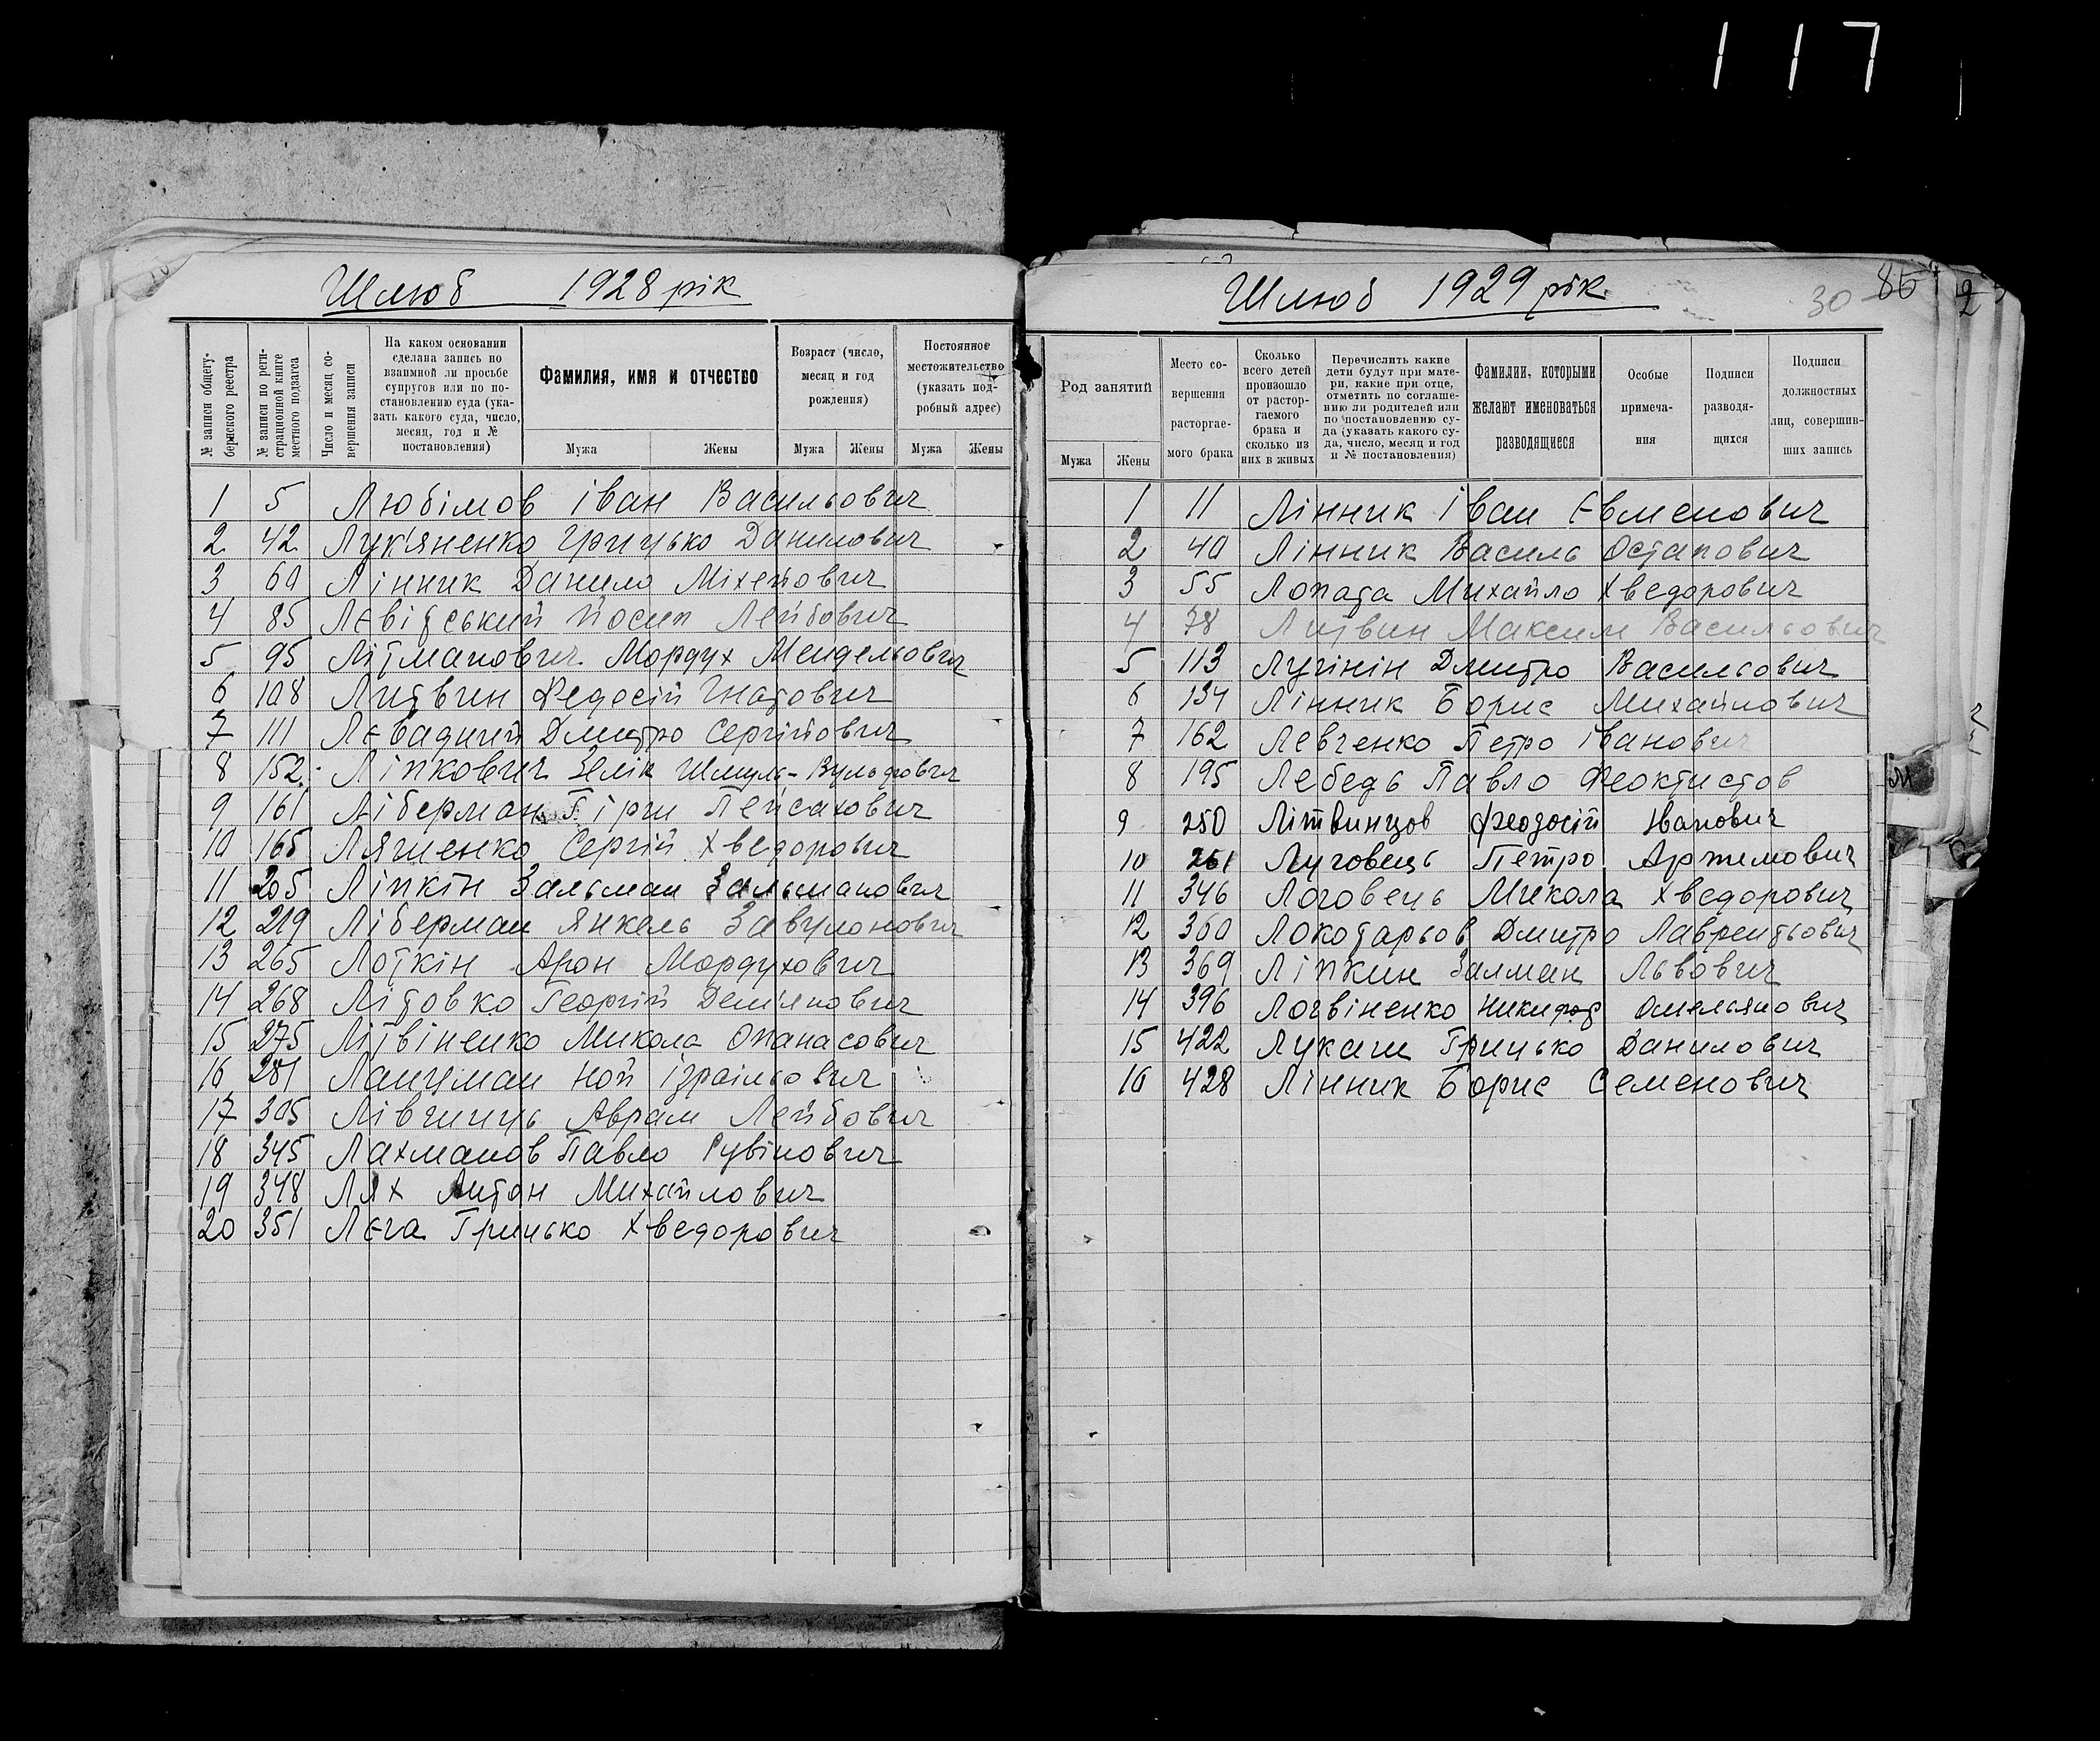 117
Шлюб 1928 рік
№ записи общегу-
бернского реестра
№ записи по реги-
страционной книге
местного подзагса
Число и месяц со-
вершения записи
На каком основании
сделана запись по
взаимной ли просьбе
супругов или по по-
становлению суда (ука-
зать какого суда, число,
месяц, год и №
постановления)
Фамилия, имя и отчество
Мужа Жены
Возраст (число,
месяц и год
рождения)
Мужа Жены
Постоянное
местожительство
(указать под-
робный адрес)
Мужа Жены
1 5 Любімов Іван Васильович
2 42 Лук'яненко Грицько Данилович
3 60 Лінник Данило Міхейович
4 85 Лєвітський Йосип Лейбович
5 95 Літманович Мордух Мендельович
6 108 Литвин Федосій Гнатович
7 111 Лєвадний Дмитро Сергійович
8 152 Ліпкович Зелік Шмуль-Вульфович
9 161 Ліберман Гірш Пейсахович
10 165 Ляшенко Сергій Хведорович
11 205 Ліпкін Зальман Зальманович
12 219 Ліберман Янкель Завулонович
13 265 Лоткін Арон Мордухович
14 268 Літовко Георгій Дем'янович
15 275 Літвіненко Микола Опанасович
16 281 Ланцман Ной Ізраільович
17 305 Лівшиць Аврам Лейбович
18 345 Лахманов Павло Рувінович
19 348 Лях Антон Михайлович
20 351 Лєга Грицько Хведорович
Шлюб 1929 рік
30 86
Род занятий
Мужа Жены
Место со-
вершения
расторгае-
мого брака
Сколько
всего детей
произошло
от растор-
гаемого
брака и
сколько из
них в живых
Перечислить какие
дети будут при мате-
ри, какие при отце,
отметить по соглаше-
нию ли родителей или
по постановлению су-
да (указать какого су-
да, число, месяц и год
и № постановления)
Фамилии, которыми
желают именоваться
разводящиеся
Особые
примеча-
ния
Подписи
разводя-
щихся
Подписи
должностных
лиц, совершив-
ших запись
1 11 Лінник Іван Євменович
2 40 Лінник Василь Остапович
3 55 Лопата Михайло Хведорович
4 78 Литвин Максим Васильович
5 113 Лучінін Дмитро Васильович
6 134 Лінник Борис Михайлович
7 162 Левченко Петро Іванович
8 195 Лебедь Павло Феоктистов
9 250 Літвинцов Феодосій Іванович
10 261 Луговець Петро Артемович
11 346 Логовець Микола Хведорович
12 360 Локотарьов Дмитро Лаврентьович
13 369 Ліпкин Залман Львович
14 396 Логвіненко Никифор Омельянович
15 422 Лукаш Грицько Данилович
16 428 Лінник Борис Семенович